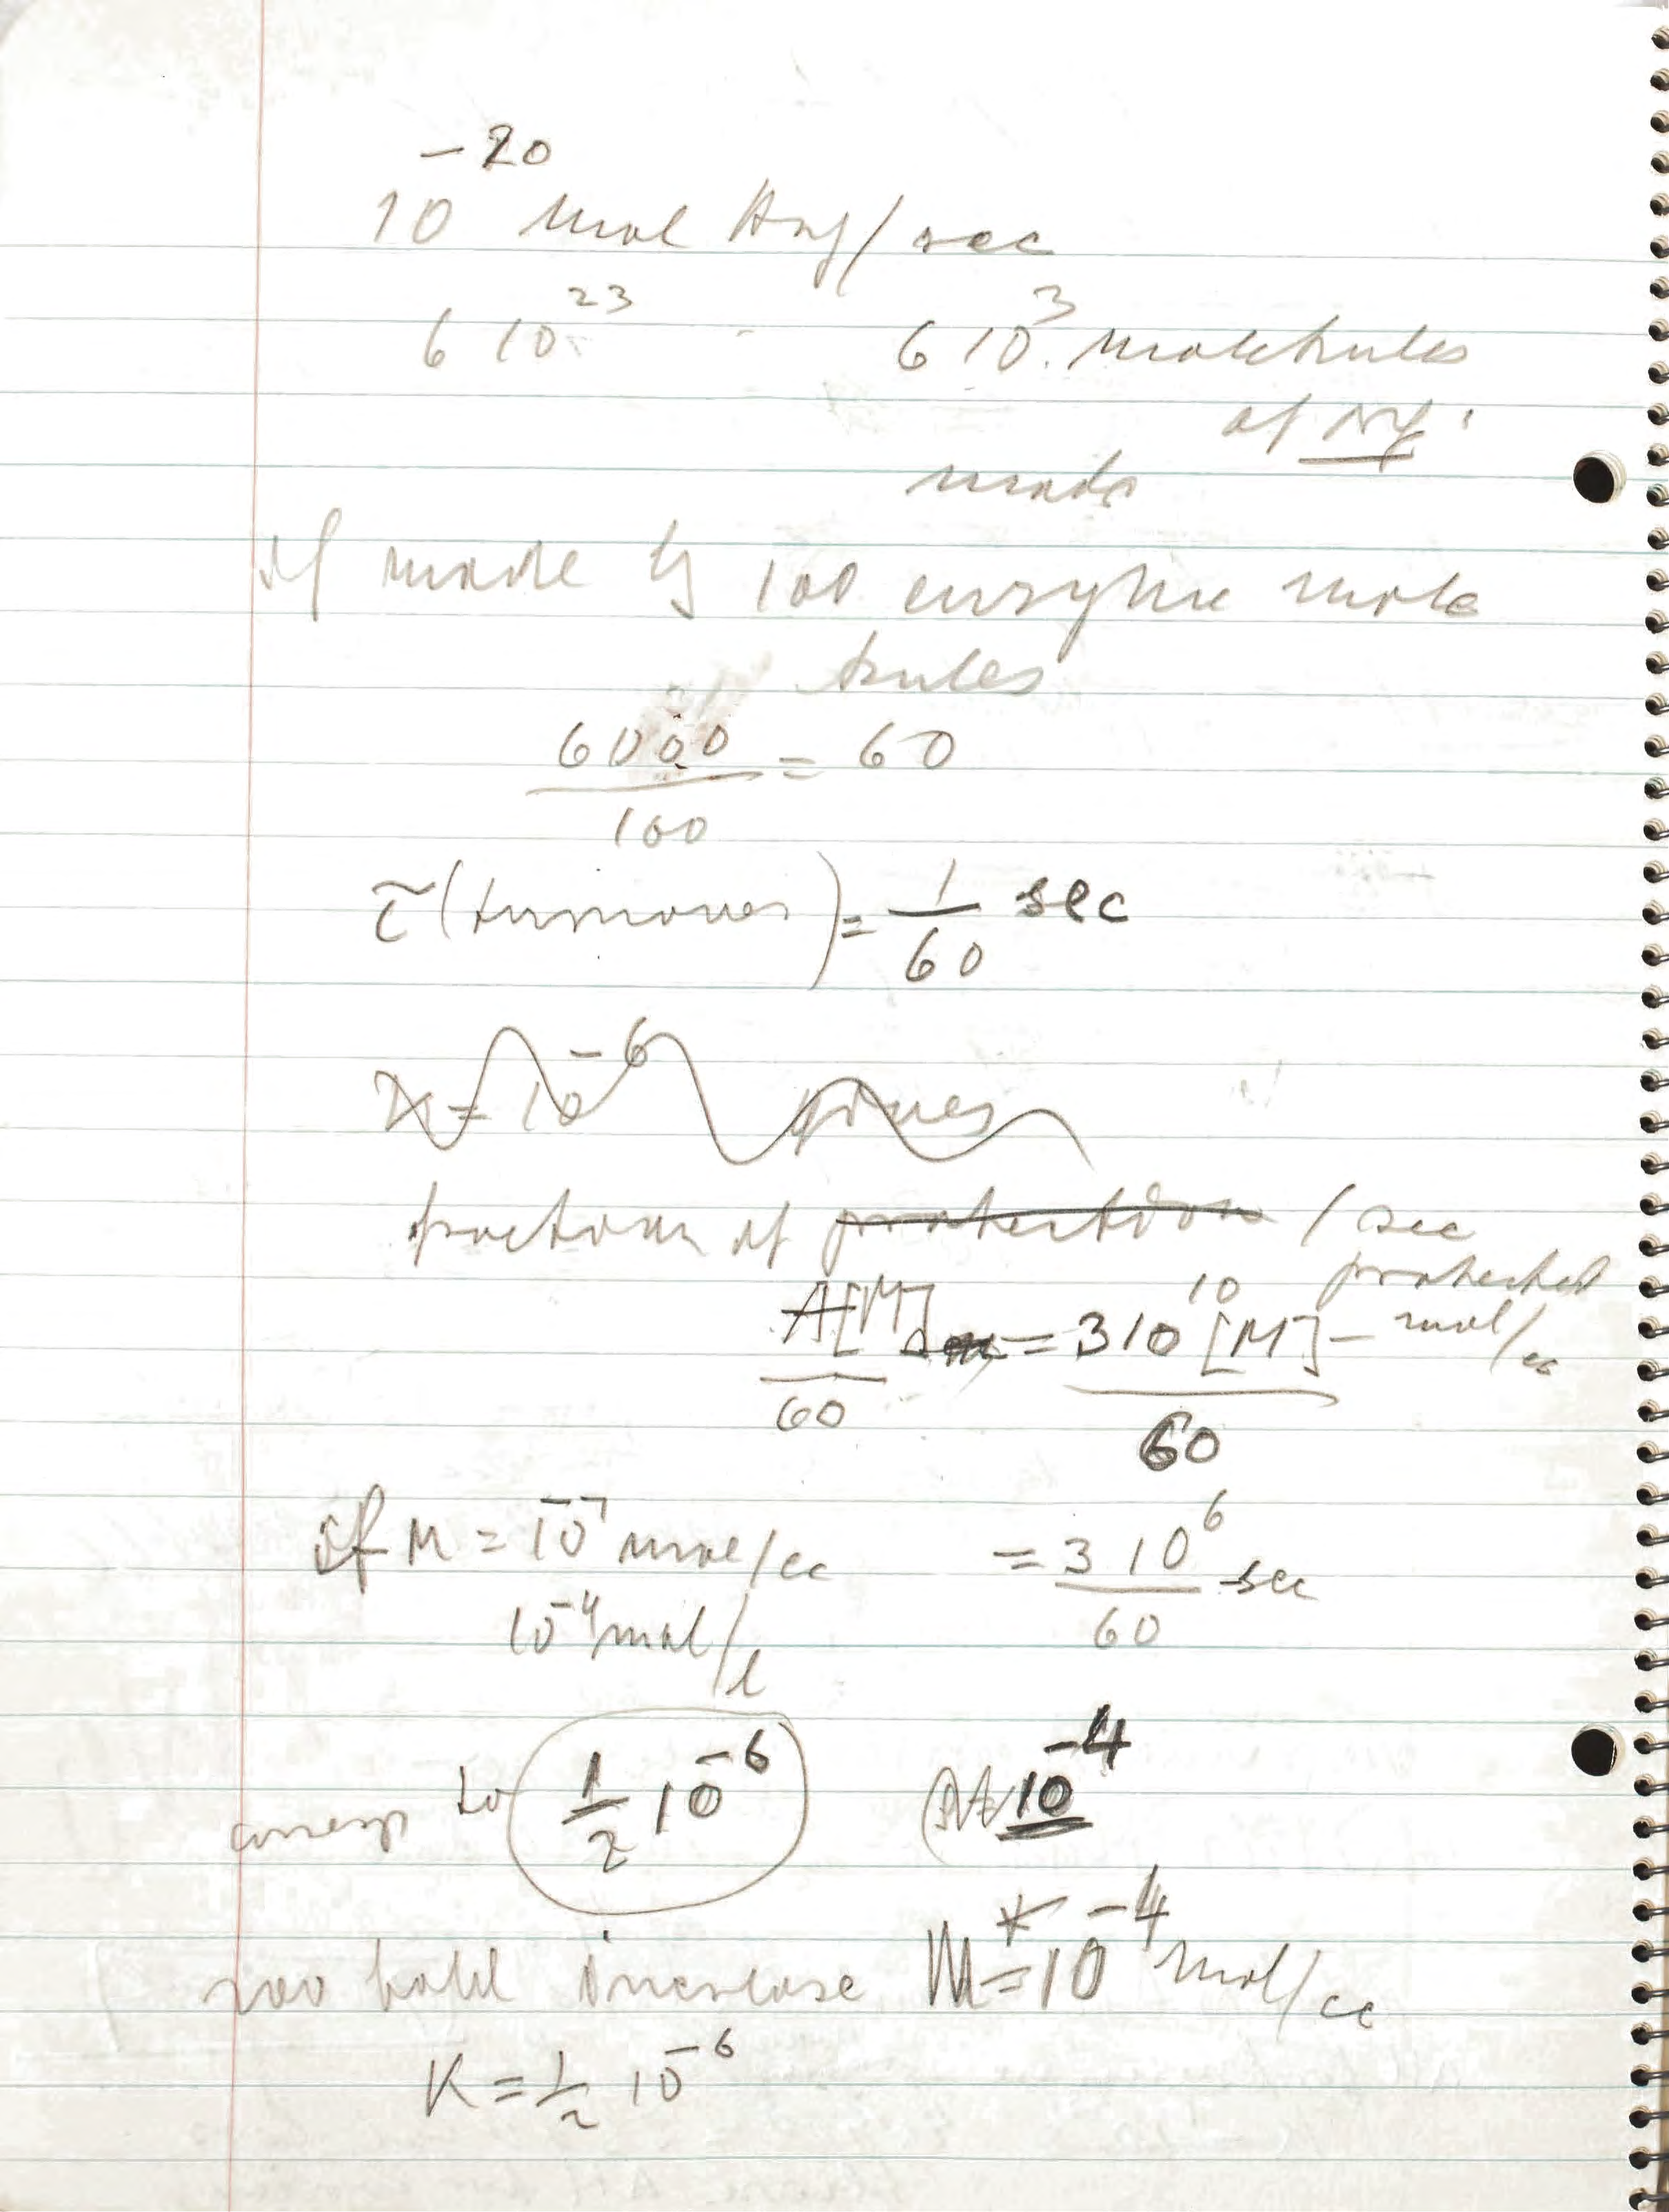 10^-20 mol Arg/sec
6 10^23 - 6 10^3 molekules
of Arg
made
if made by 100 enzyme mole
kules
6000/100 = 60
τ(turnover) = 1/60 sec
K = 10^-6 gives
fraction of protection /sec
protected
A[M]/60 = 3 10^10 [M]/60 - mol/cc
if M = 10^-7 mol/cc = 3 10^6/60 sec
10^-4 mol/l
corresp to 1/2 10^-6 (At 10^-4
200 fold increase M* = 10^-4 mol/cc
K = 1/2 10^-6